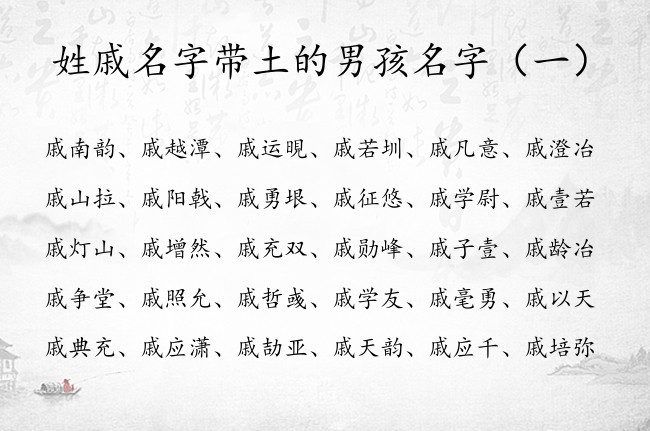 姓戚名字带土的男孩名字（一）
戚南韵、戚越潭、戚运晛、戚若圳、戚凡意、戚澄冶
戚山拉、戚阳戟、戚勇垠、戚征悠、戚学尉、戚壹若
戚灯山、戚增然、戚充双、戚勋峰、戚子壹、戚龄冶
戚争堂、戚照允、戚哲彧、戚学友、戚毫勇、戚以天
戚典充、戚应潇、戚劼亚、戚天韵、戚应千、戚培弥